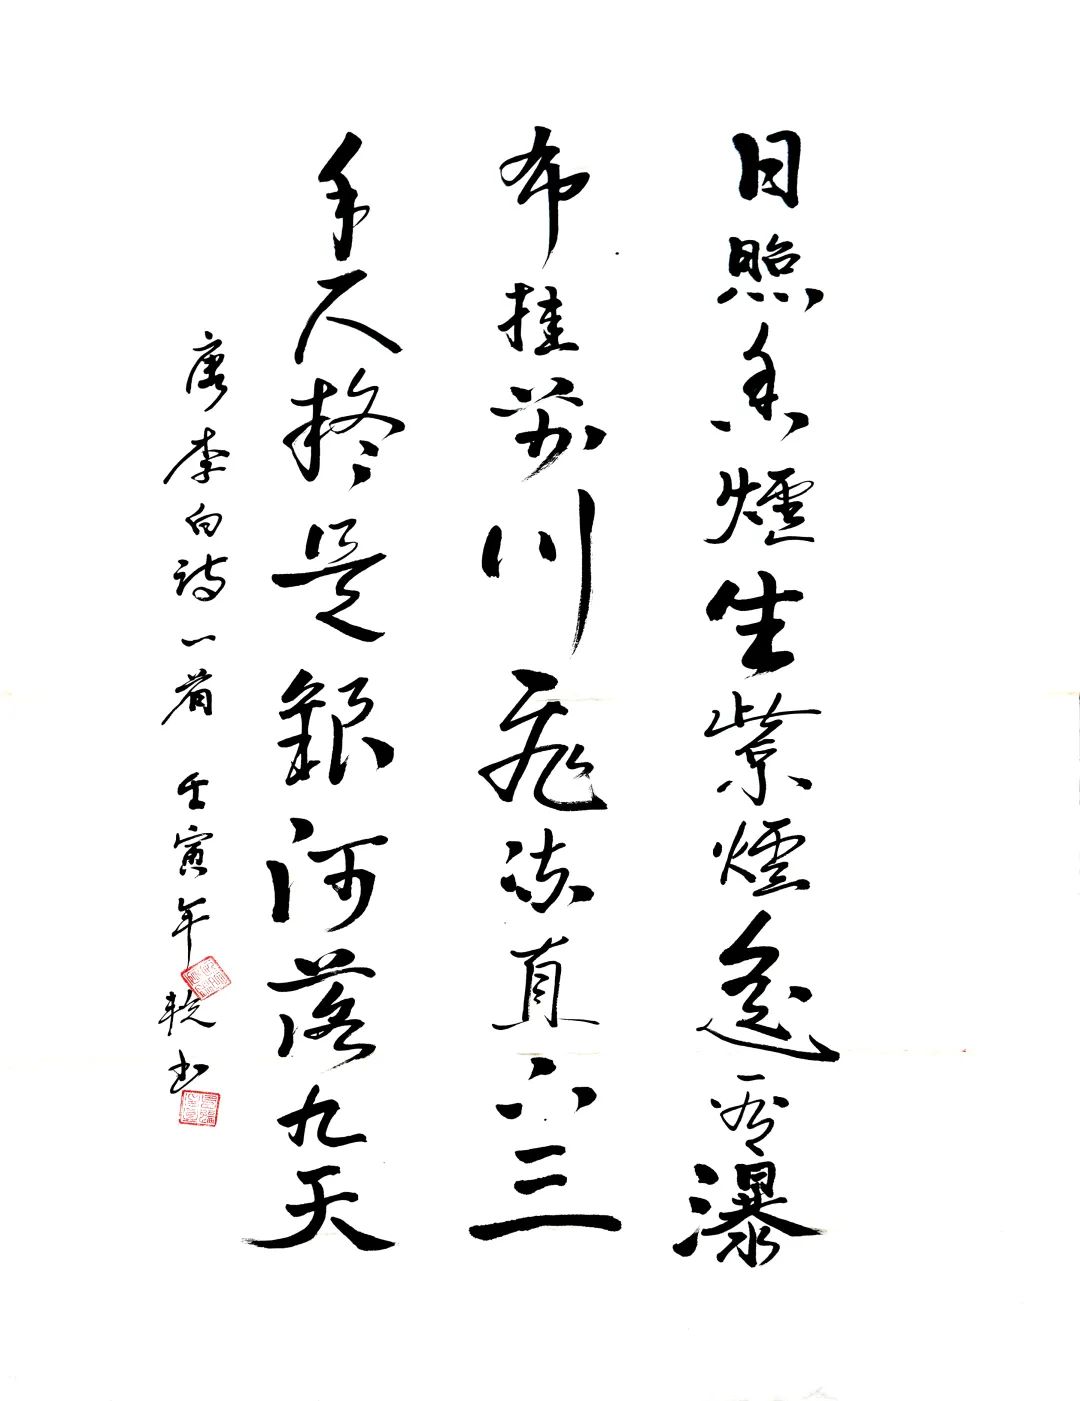 日照香爐生紫煙遙看瀑
布挂前川飛流直下三
千尺疑是銀河落九天
唐李白詩一首 壬寅年 书